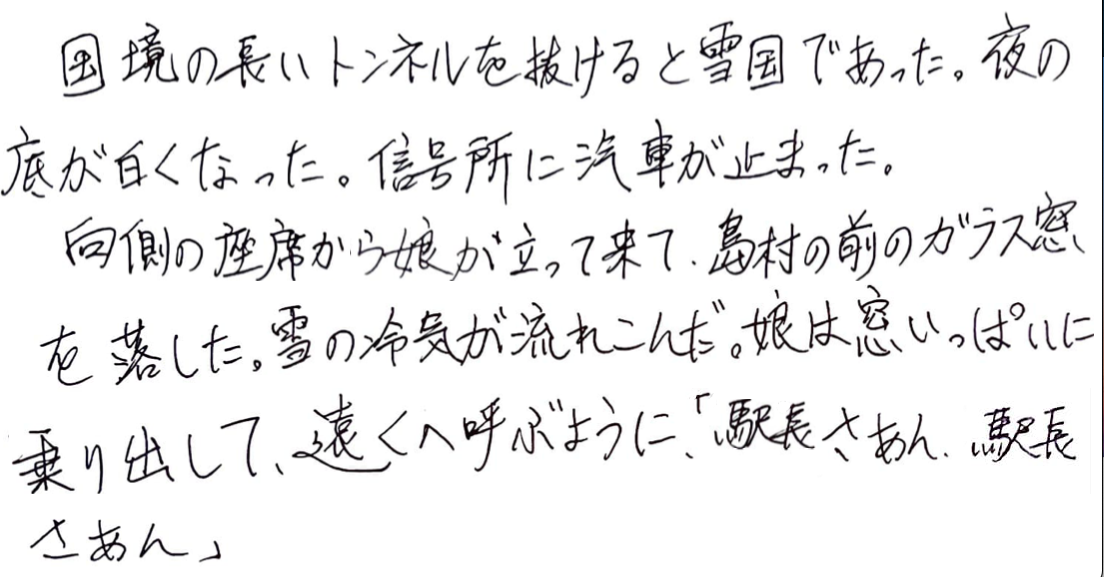 国境の長いトンネルを抜けると雪国であった。夜の
底が白くなった。信号所に汽車が止まった。
向側の座席から娘が立って来て、島村の前のガラス窓
を落した。雪の冷気が流れこんだ。娘は窓いっぱいに
乗り出して、遠くへ呼ぶように、「駅長さあん、駅長
さあん」